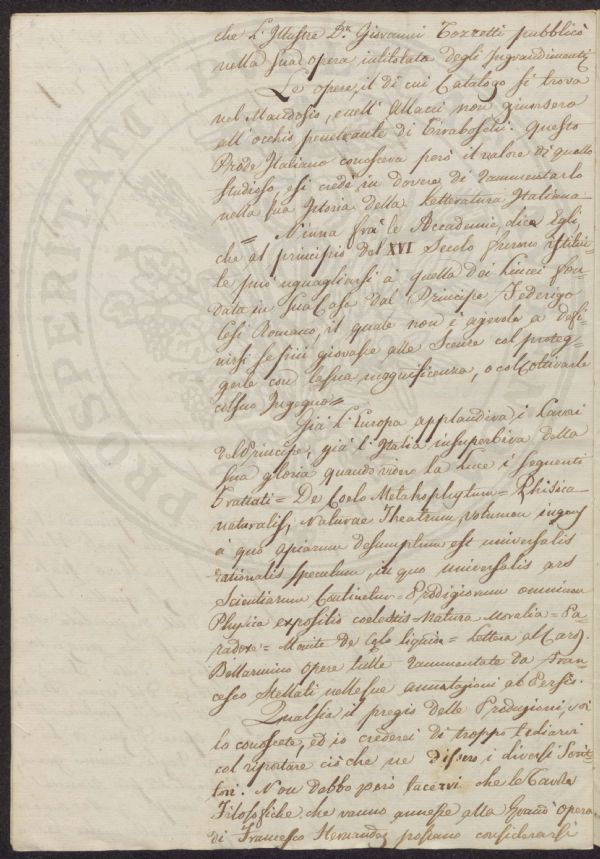 che L'Illustre Dr. Giovanni Tozzetti pubblicò
nella sua opera intitolata degli Ingrandimenti
Le opere, il di cui Catalogo si trova
nel Mandosio, e nell'Allacci non giunsero
all'occhio penetrante di Tiraboschi. Questo
Prode Italiano conosceva però il valore di quello
studioso, e si credè in dovere di rammentarlo
nella sua Istoria della Letteratura Italiana
= Niuna frà le Accademie, dice Egli,
che al principio del XVI Secolo furono istitui-
te può uguagliarsi à quella dei Lincei fon-
data in sua Casa dal Principe Federigo
Cesi Romano, il quale non è agevole a defi-
nirsi se più giovasse alle Scienze col proteg-
gerle con la sua magnificenza, o col coltivarle
col suo Ingegno =
Già L'Europa applaudiva i Lavori
del Principe, già l'Italia insuperbiva della
sua gloria quando videro la Luce i seguenti
Trattati = De Coelo Metaphytum = Phisica
naturalis, Naturae Theatrum, volumen ingens
à quo apiarum desumptum est universalis
rationalis speculum, in quo universalis ars
Scientiarum Continetur = Prodigiorum omnium
Physica expositio coelestis = Natura Moralia = Pa-
radoxe = Monite De Celo liquido = Lettera al Card.
Bellarmino opere tutte rammentate da Fran-
cesco Stellati nelle sue annotazioni al Persio.
Qualsia il pregio delle Produzioni, voi
lo conoscete, ed io crederei di troppo tediarvi
col riportare ciò che ne dissero i diversi Scrit-
tori. Non debbo però tacervi che le Tavole
Filosofiche che vanno annesse alla Grand'opera
di Francesco Hernandez possano considerarsi